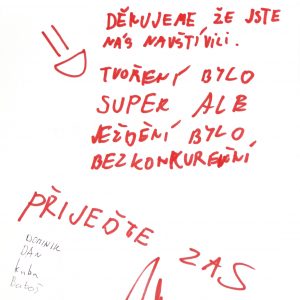 DĚKUJEME, ŽE JSTE
NÁS NAVŠTÍVILI.
TVOŘENÍ BYLO
SUPER ALE
JEŽDĚNÍ BYLO
BEZKONKURENČNÍ
PŘIJEĎTE
ZAS
DOMINIK
DAN
Kuba